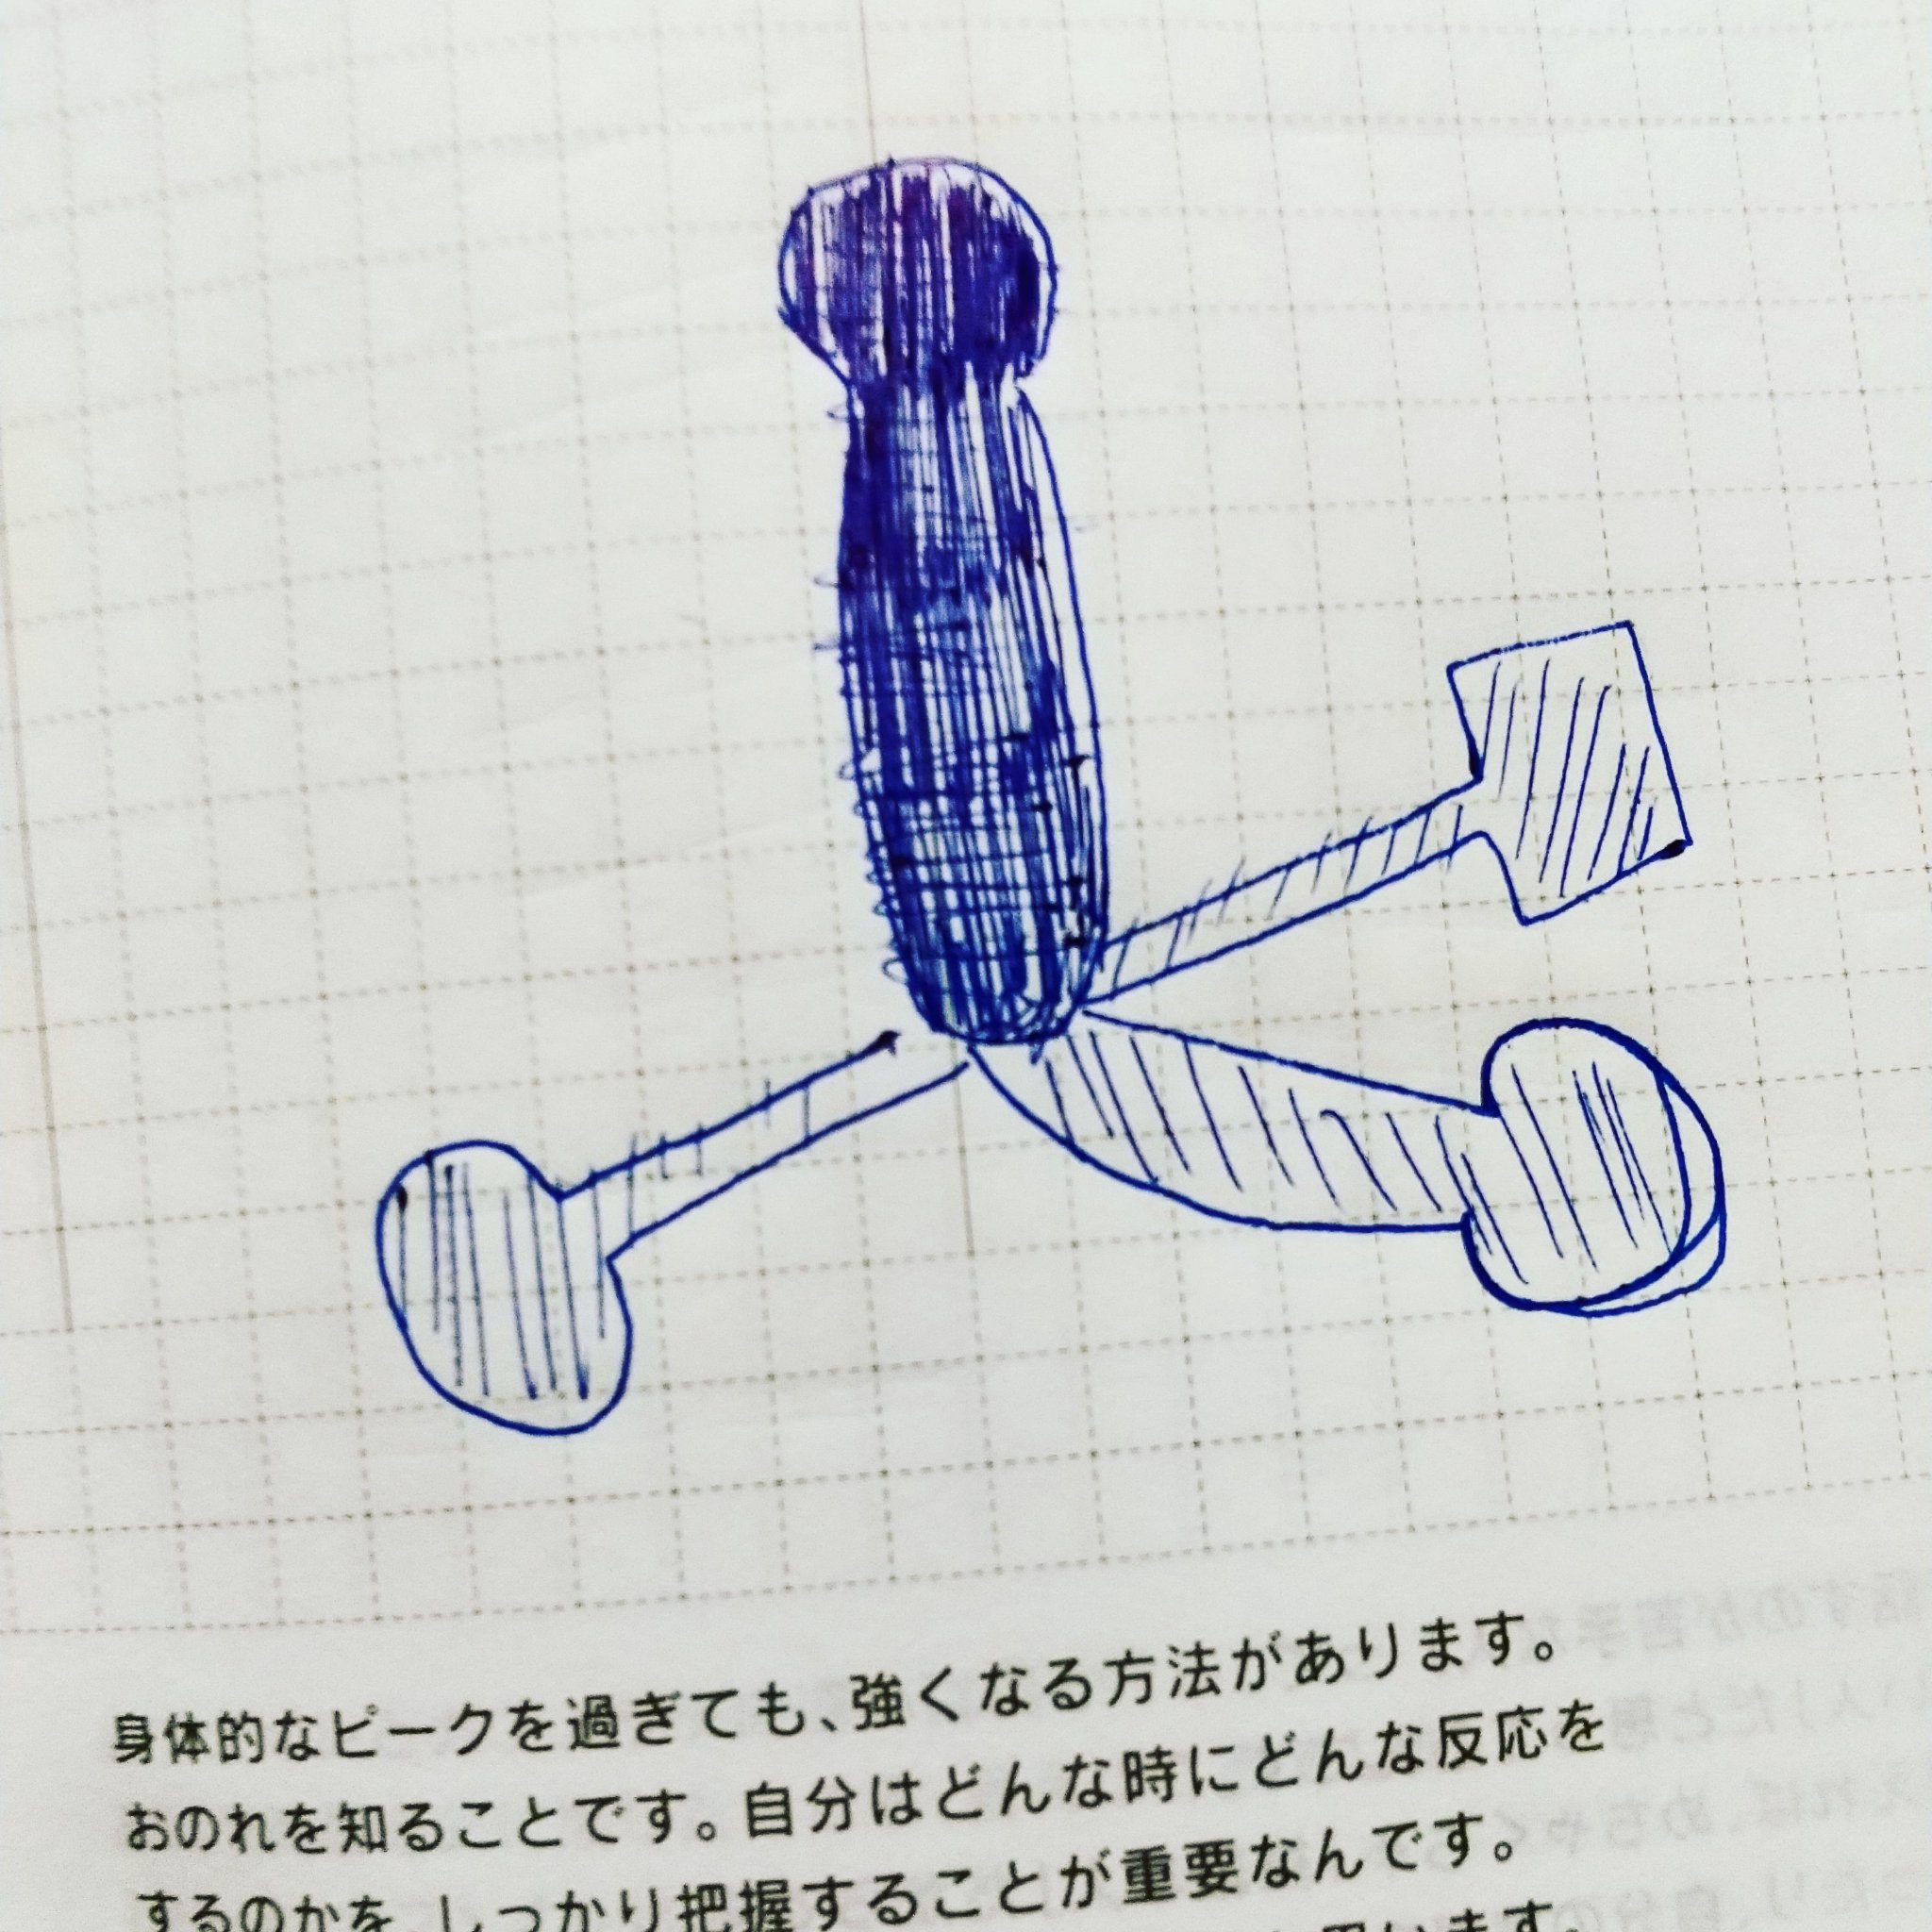 身体的なピークを過ぎても、強くなる方法があります。
おのれを知ることです。自分はどんな時にどんな反応を
するのかを、しっかり把握することが重要なんです。
思います。